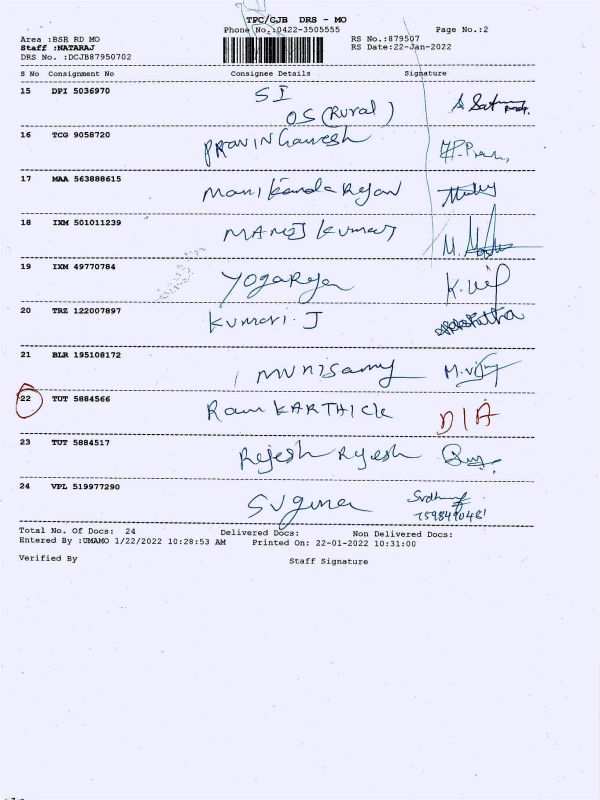 TPC/CJB DRS - MO
Phone No.:0422-3505555 Page No.:2
Area :BSR RD MO RS No.:879507
Staff :NATARAJ RS Date:22-Jan-2022
DRS No. :DCJB87950702
S No Consignment No Consignee Details Signature
15 DPI 5036970 SI
OS (Rural)
16 TCG 9058720 PRAVIN Ganesh
17 MAA 563888615 Manikanda Rajan
18 IXM 501011239 MANOJ kumar
19 IXM 49770784 Yogaraja
20 TRZ 122007897 Kumari. J
21 BLR 195108172 Munisamy
22 TUT 5884566 Ram KARTHICK D/A
23 TUT 5884517 Rejesh Rajesh
24 VPL 519977290 Suguna
7598490481
Total No. Of Docs: 24 Delivered Docs: Non Delivered Docs:
Entered By :UMAMO 1/22/2022 10:28:53 AM Printed On: 22-01-2022 10:31:00
Verified By Staff Signature